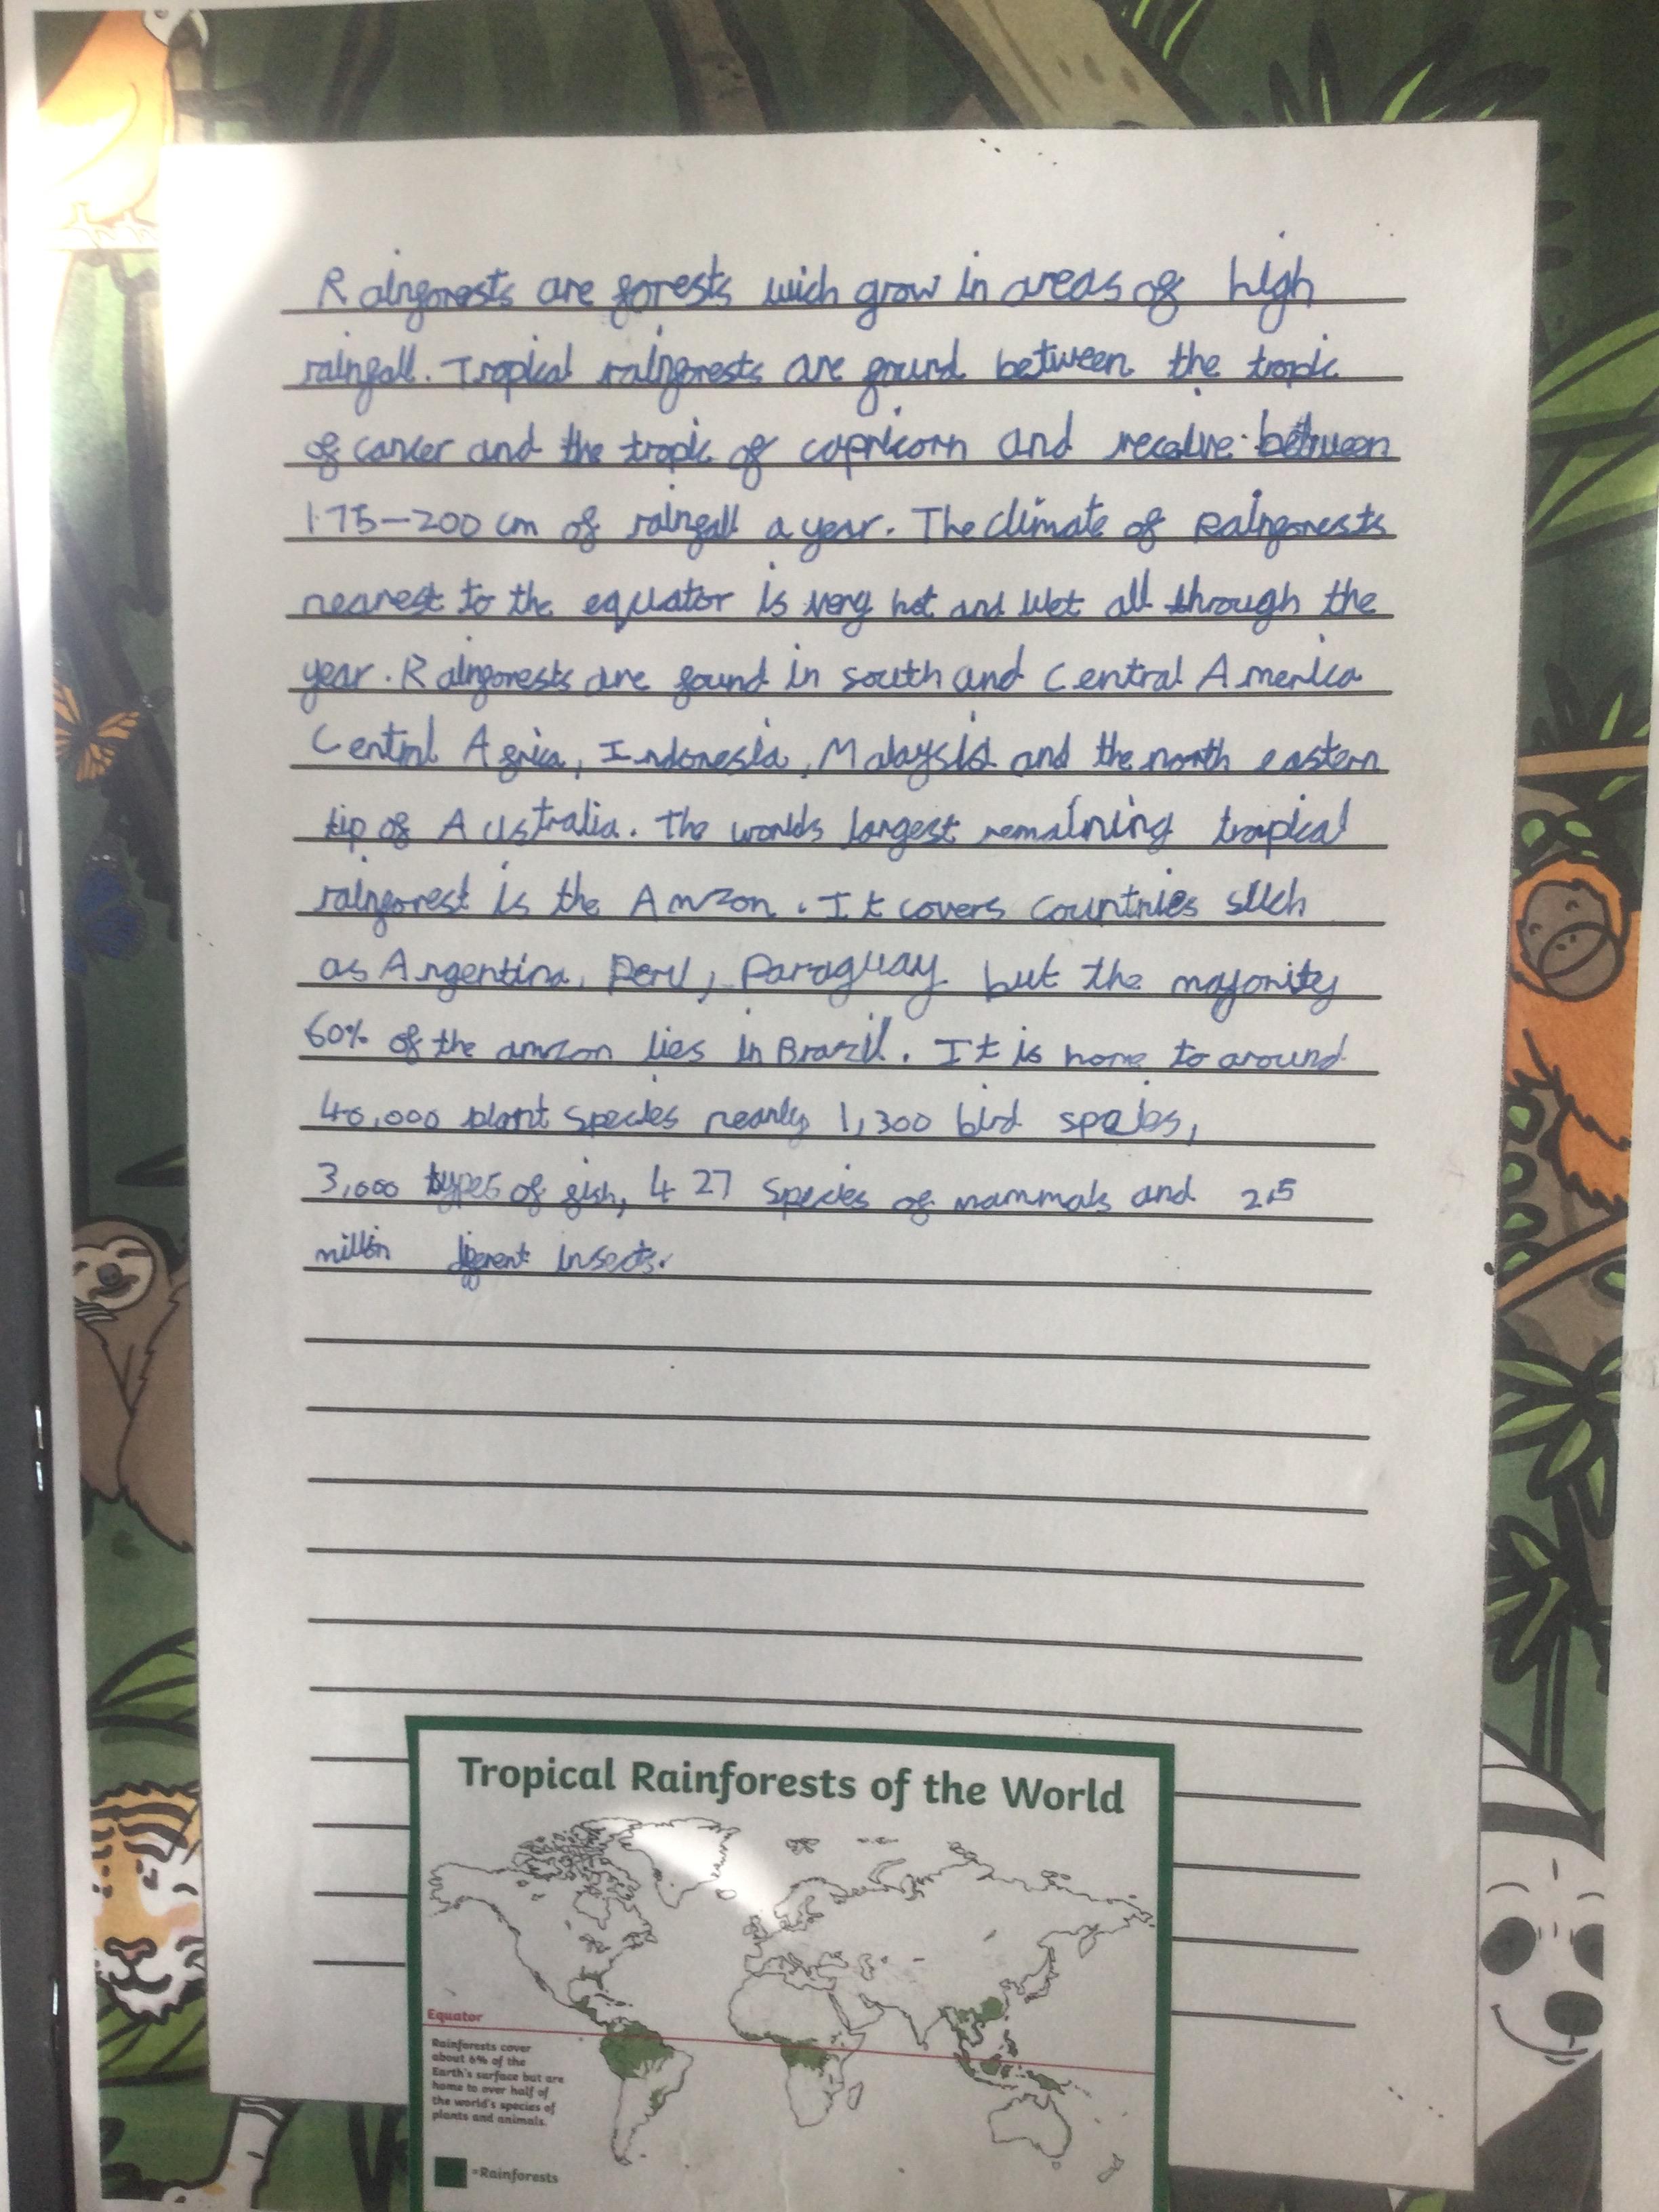 Rainforests are forests wich grow in areas of high
rainfall. Tropical rainforests are found between the tropic
of cancer and the tropic of capricorn and receive between
175-200 cm of rainfall a year. The climate of Rainforests
nearest to the equator is very hot and wet all through the
year. Rainforests are found in south and Central America
Central Africa, Indonesia, Malaysia and the north eastern
tip of Australia. The worlds largest remaining tropical
rainforest is the Amzon. It covers countries such
as Argentina, Peru, Paraguay but the majority
60% of the amzon lies in Brazil. It is home to around
40,000 plant species nearly 1,300 bird species,
3,000 types of fish, 427 species of mammals and 2.5
million different insects.
Tropical Rainforests of the World
Equator
Rainforests cover
about 6% of the
Earth's surface but are
home to over half of
the world's species of
plants and animals.
=Rainforests